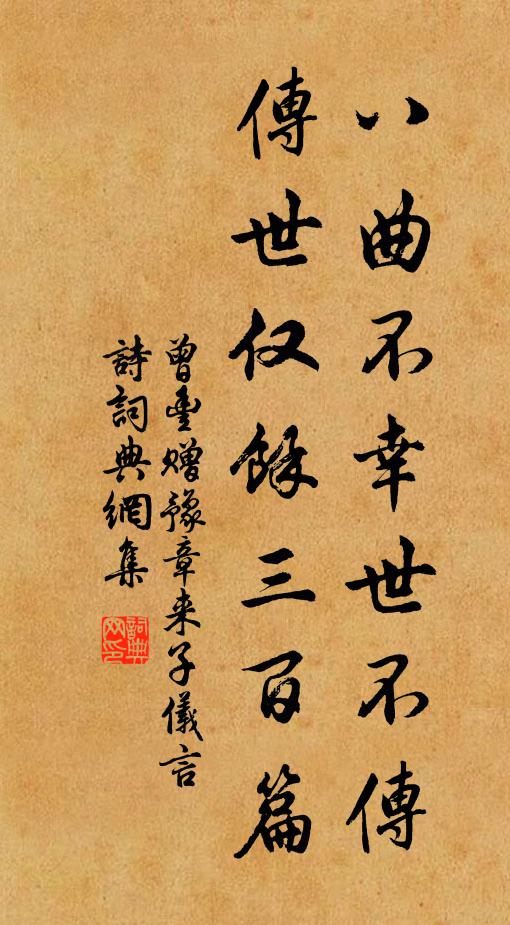 八曲不幸世不傳
傳世仅餘三百篇
曾豐贈豫章来子儀言
詩詞典網集
詞典网印